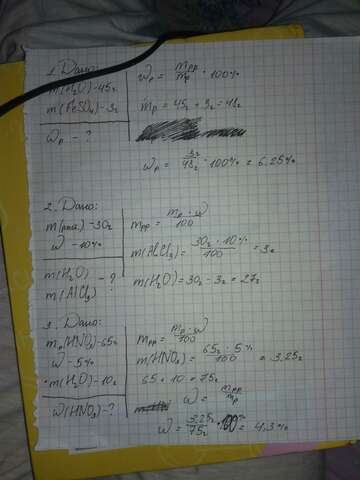 1. Дано:
m(H₂O)-45г
m(FeSO₄)-3г
Wр - ?
Wр = mрр/mр · 100%
mр = 45г + 3г = 48г
Wр = 3г/48г · 100% = 6.25%
2. Дано:
m(розч.) -30г
W -10%
m(H₂O) - ?
m(AlCl₃)
mрр = mр · W/100
m(AlCl₃) = 30г · 10%/100 = 3г
m(H₂O) = 30г - 3г = 27г
3. Дано:
mр(HNO₃)-65г
W-5%
m(H₂O)-10г
W(HNO₃)-?
mрр = mр · W/100
m(HNO₃) = 65г · 5%/100 = 3,25г
65 + 10 = 75г
W = mрр/mр
W = 3,25г/75г · 100% = 4.3%